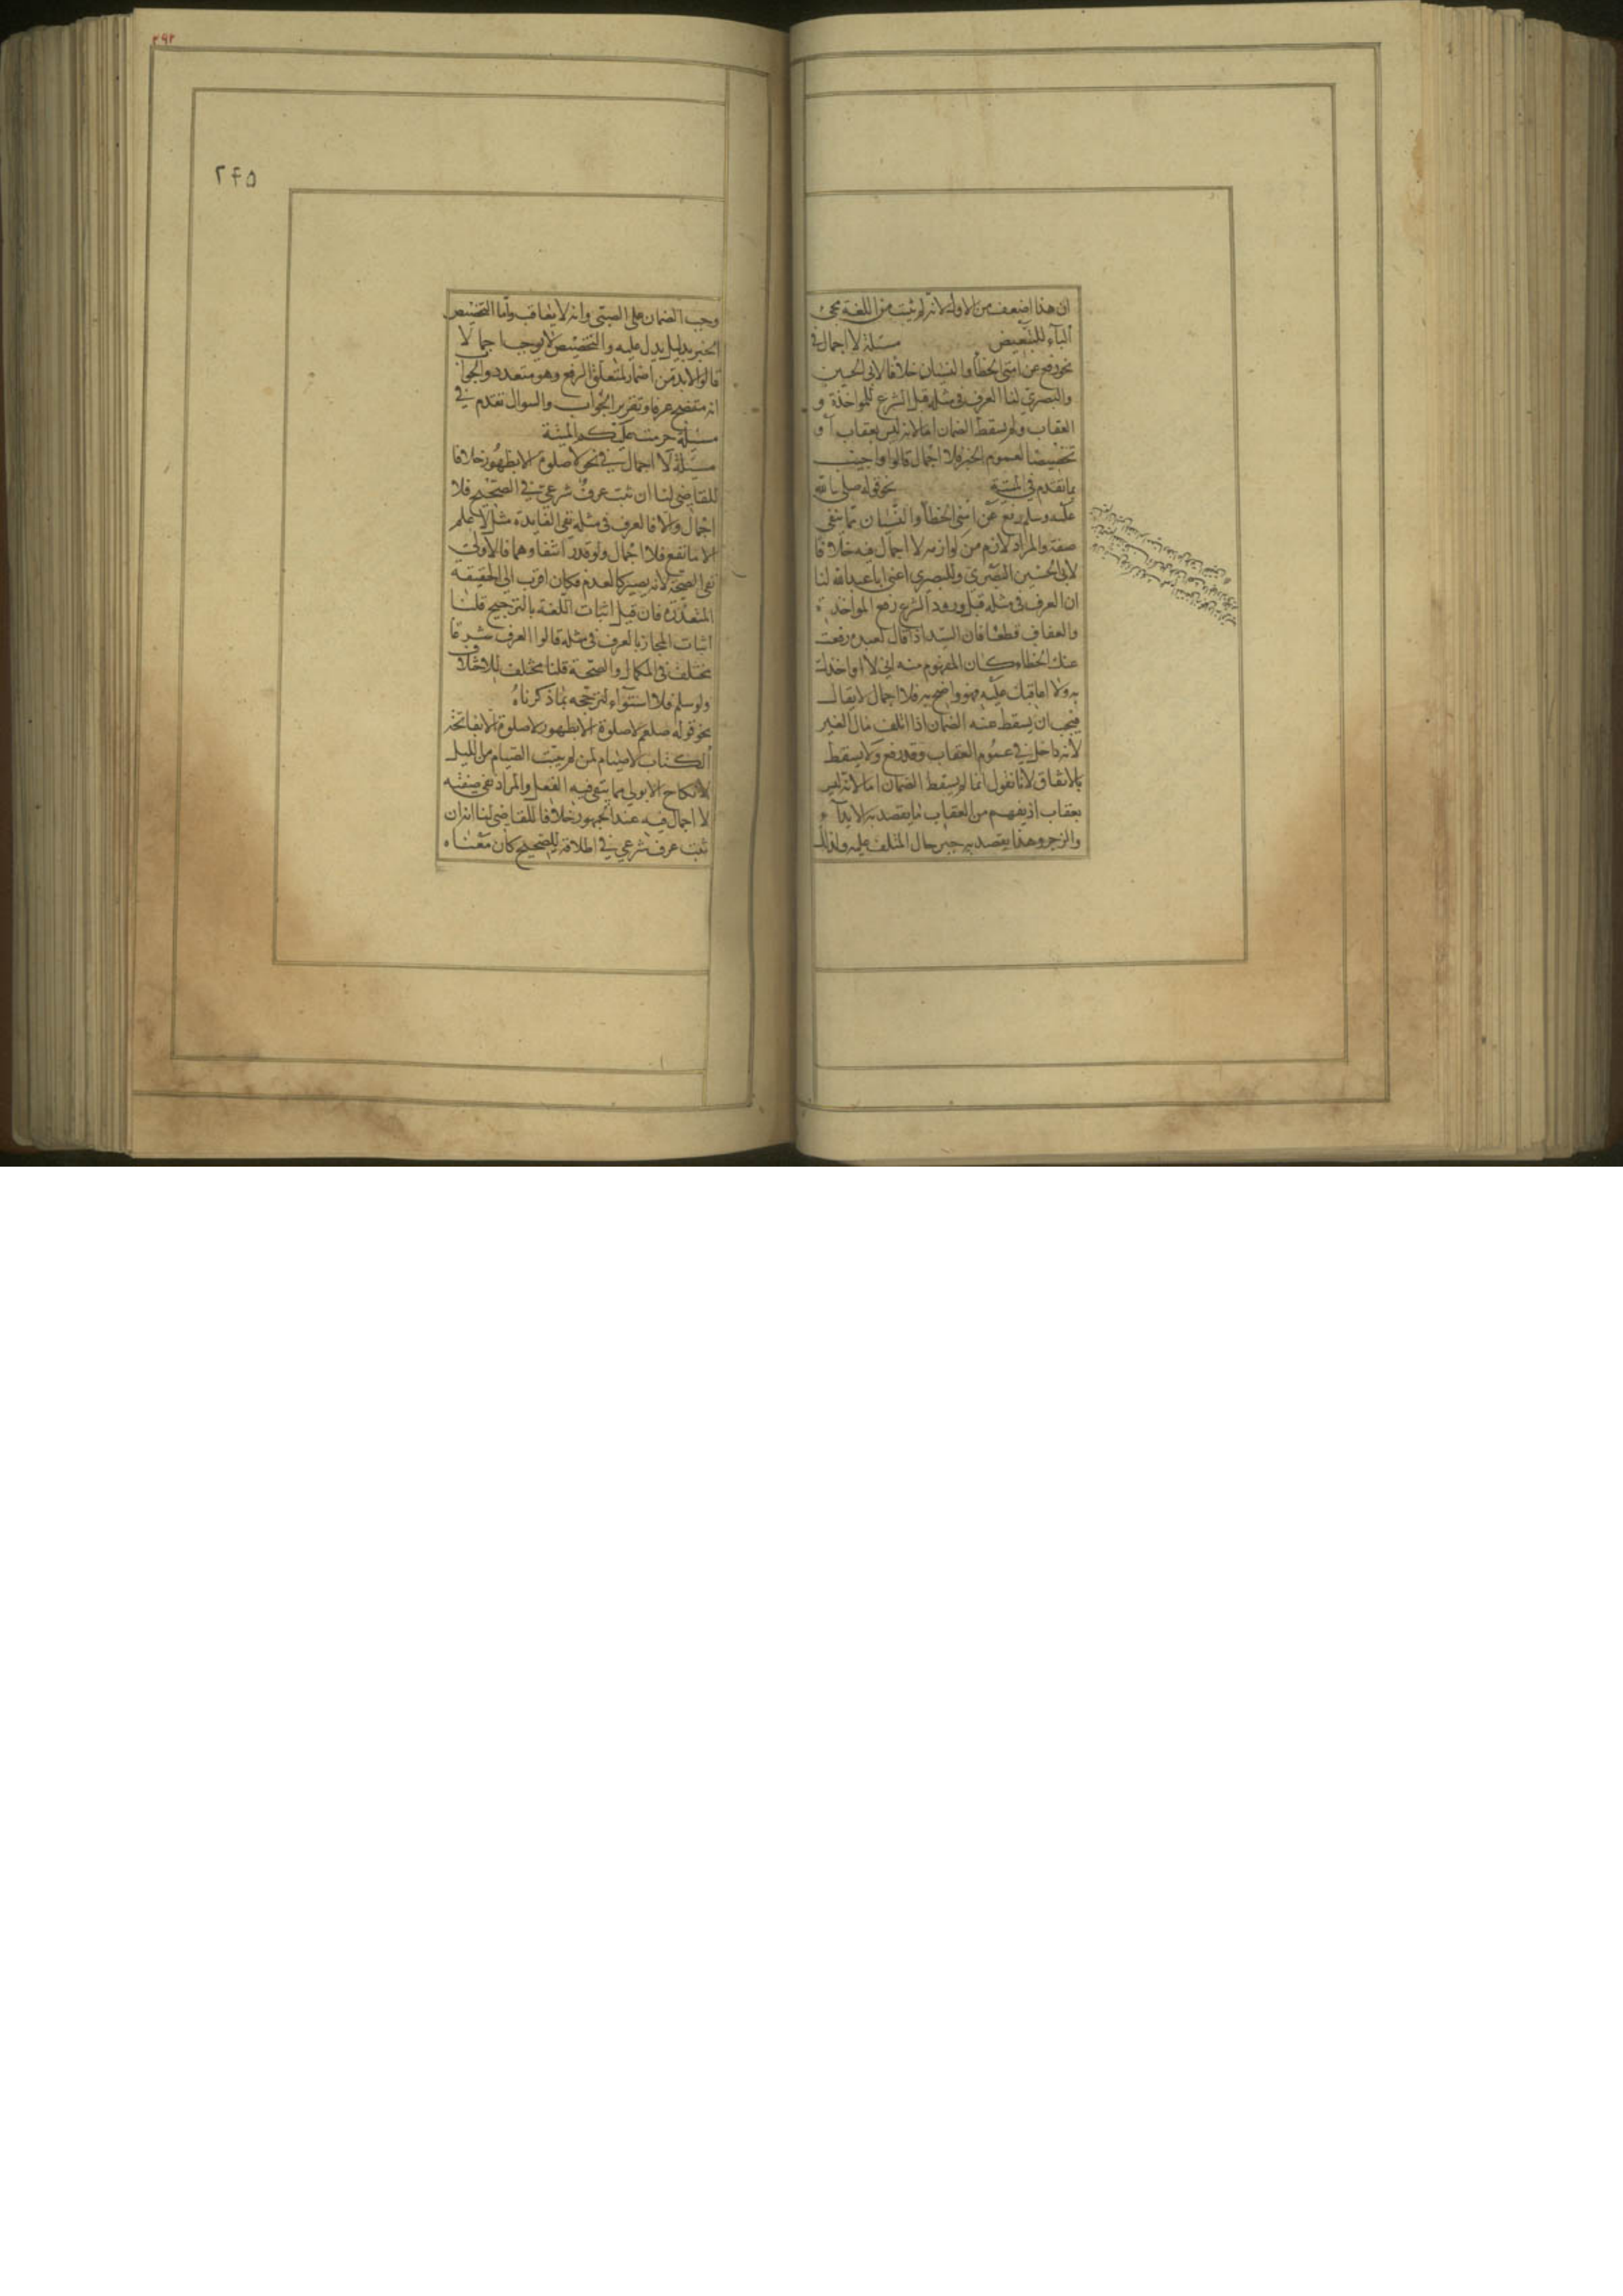 ان هذا اضعف من الاول لانه لم يثبت من اللغة مجئ
الباء للتبعيض مسئلة لا اجمال في
نحو رفع عن امتى الخطأ والنسيان خلافا لابي الحسين
والبصري لنا العرف في مثله قبل الشرع للمواخذة و
العقاب ولم يسقط الضمان اما لانه ليس بعقاب او
تخصيصا لعموم الخبر فلا اجمال قالوا واجيب
بما تقدم في الميتة نحو قوله صلى الله
عليه وسلم رفع عن امتى الخطأ والنسيان مما ينفى
صفة والمراد لازم من لوازمه لا اجمال فيه خلافا
لابى الحسين البصري وللبصري اعنى ابا عبد الله لنا
ان العرف في مثله قبل ورود الشرع رفع المواخذة
والعقاب قطعا فان السيد اذا قال لعبده رفعت
عنك الخطاء كان المفهوم منه اني لا اواخذك
به ولا اعاقبك عليه فهو واضح فيه فلا اجمال لا يقال
فيجب ان يسقط عنه الضمان اذا اتلف مال الغير
لانه داخل في عموم العقاب وقد رفع ولا يسقط
بالاتفاق لانا نقول انما لم يسقط الضمان اما لانه ليس
بعقاب اذ يفهم من العقاب ما يقصد به الايذاء
والزجر وهذا يقصد به جبر حال المتلف عليه ولذلك
٢٩٢
٢٤٥
وجب الضمان على الصبى وانه لا يعاقب واما التخصيص
الخبر بدليل يدل عليه والتخصيص لا يوجب اجمالا
قالوا لا بد من اضمار لمتعلق الرفع وهو متعدد والجواب
انه متضح عرفا وتقرير الجواب والسوال تقدم في
مسئلة حرمت عليكم الميتة
مسئلة لا اجمال في نحو لا صلوة الا بطهور خلافا
للقاضى لنا ان ثبت عرف شرعي في الصحيح فلا
اجمال والا فالعرف في مثله نفى الفايدة مثل لا علم
الا ما نفع فلا اجمال ولو قدر انتفاوهما فالاولى
نفى الصحة لانه يصير كالعدم فكان اقرب الى الحقيقة
المتعذرة فان قيل اثبات اللغة بالترجيح قلنا
اثبات المجاز بالعرف في مثله قالوا العرف شرعا
يختلف في الكمال والصحة قلنا مختلف للاختلاف
ولو سلم فلا استواء لترجحه بما ذكرناه
نحو قوله صلعم لا صلوة الا بطهور لا صلوة الا بفاتحة
الكتاب لا صيام لمن لم يبيت الصيام من الليل
لا نكاح الا بولي مما ينفى فيه الفعل والمراد نفى صفته
لا اجمال فيه عند الجمهور خلافا للقاضى لنا انه ان
ثبت عرف شرعي في اطلاقه للصحيح كان معناه